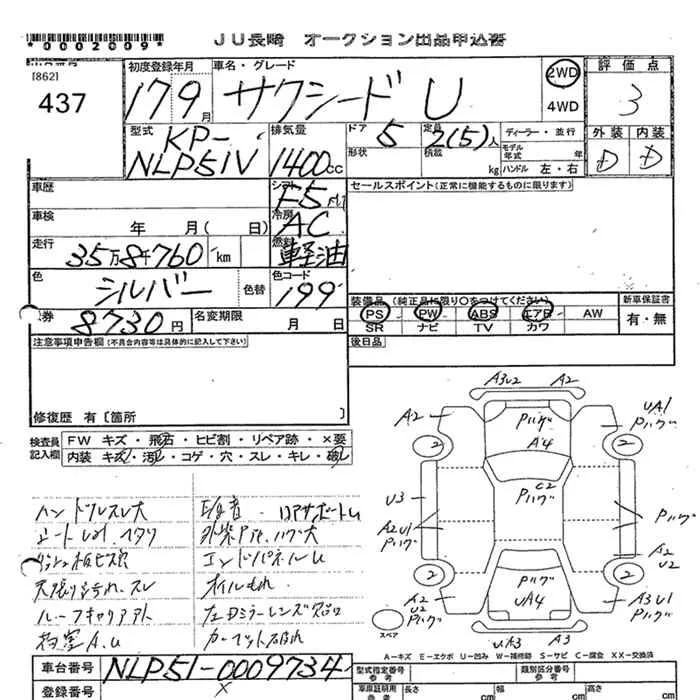 *0002009*
JU長崎 オークション出品申込書
[862]
437
初度登録年月
17年9月
車名・グレード
サクシード U
2WD
4WD
評価点
3
外装 内装
D D
型式
KP-
NLP51V
排気量
1400cc
ドア
5
形状
定員
2(5)人
積載
kg
ディーラー・並行
モデル年式 年
ハンドル 左・右
車歴
シフト
F5
セールスポイント(正常に機能するものに限ります)
車検 年 月( 日)
冷房
AC
走行
35万8千760 km
燃料
軽油
色
シルバー
色替
色コード
199
装備品(純正品に限り〇をつけてください)
PS PW ABS エアB AW
SR ナビ TV カワ
新車保証書
有・無
券
8730円
名変期限 月 日
後日品
注意事項申告欄(不具合内容等は具体的に記入して下さい)
修復歴 有〔箇所 〕
検査員記入欄
FW キズ・飛石・ヒビ割・リペア跡・×要
内装 キズ・汚れ・コゲ・穴・スレ・キレ・破れ
ハンドルスレ大
シートU大 ヘタリ
天張り汚れ、スレ
ルーフキャリア外
荷室A.U
ロアサポートU
エンドパネルU
オイルもれ
左ドミラーレンズ
カーマット破れ
A3U2 A2
A2
Pハゲ
A4
UA1
Pハゲ
2
2
C2
Pハゲ
U3
A2U1
Pハゲ
Pハゲ
A2
U2
2
2
Pハゲ
UA4
A2
U2
Pハゲ
A3U1
Pハゲ
スペア
UA3 A3
A-キズ E-エクボ U-凹み W-補修跡 S-サビ C-腐食 XX-交換済
車台番号
NLP51-0009734
登録番号
×
型式指定番号
※参考
類別区分番号
※参考
車庫証明用
※参考
長さ cm
幅
高さ cm